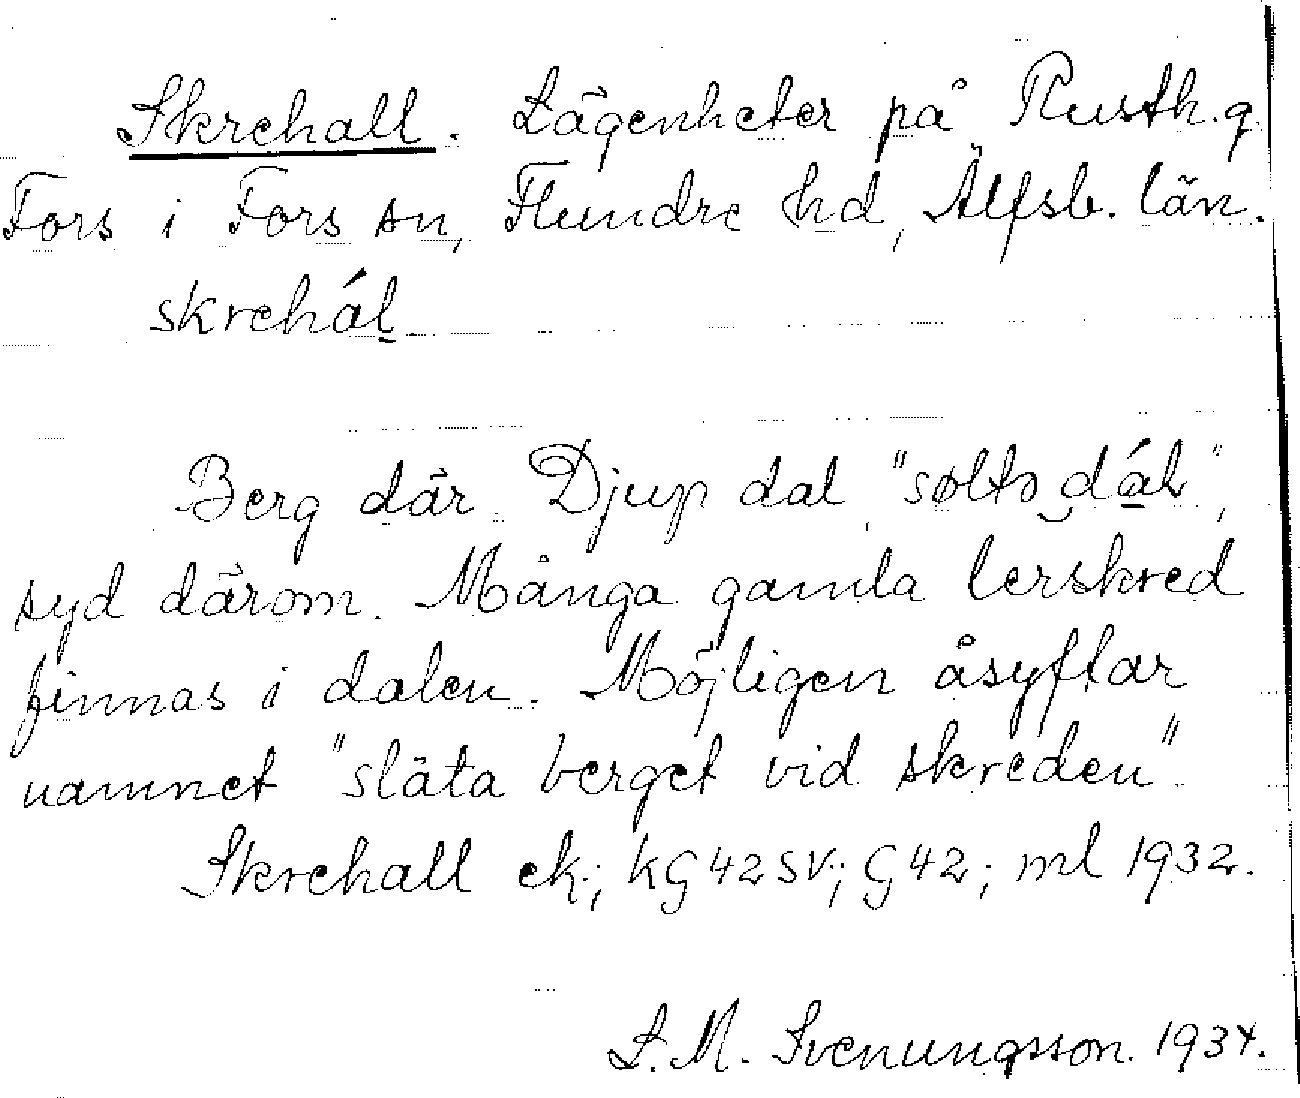 Skrehall. Lägenheter på Rusth.g.
Fors i Fors sn, Flundre hd, Älfsb. län.
skrehál
Berg där. Djup dal, "søltədáḷ",
syd därom. Många gamla lerskred
finnas i dalen. Möjligen åsyftar
namnet "släta berget vid skreden".
Skrehall ek; kG42SV; G42; ml 1932.
L.M. Svenungsson. 1934.